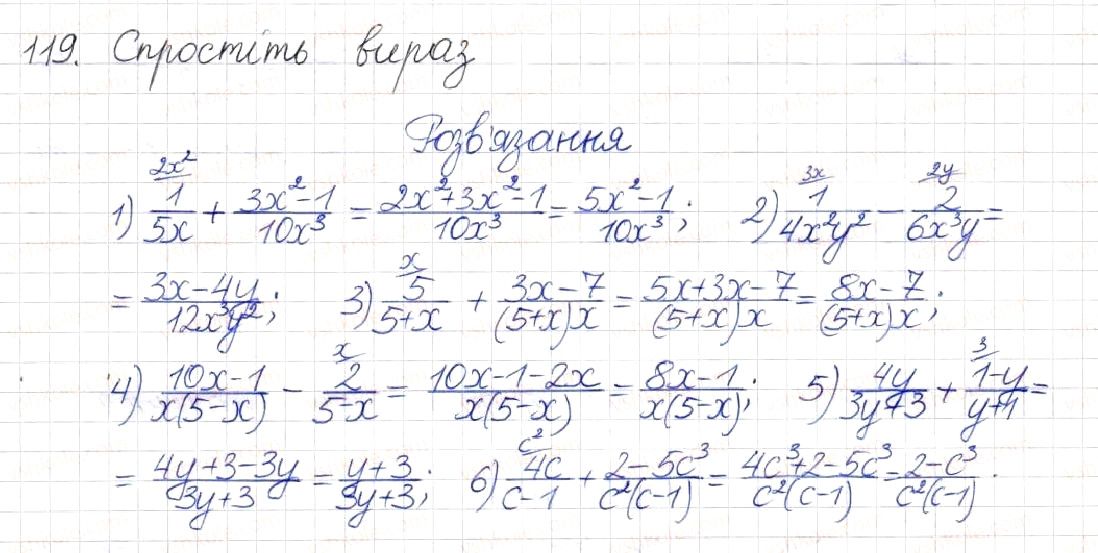 119. Спростіть вираз
Розв'язання
1) \frac{1}{5x}^{2x²/} + \frac{3x²-1}{10x³} = \frac{2x²+3x²-1}{10x³} = \frac{5x²-1}{10x³}; 2) \frac{1}{4x²y²}^{3x/} - \frac{2}{6x³y}^{2y/} =
= \frac{3x-4y}{12x³y²}; 3) \frac{5}{5+x}^{x/} + \frac{3x-7}{(5+x)x} = \frac{5x+3x-7}{(5+x)x} = \frac{8x-7}{(5+x)x};
4) \frac{10x-1}{x(5-x)} - \frac{2}{5-x}^{x/} = \frac{10x-1-2x}{x(5-x)} = \frac{8x-1}{x(5-x)}; 5) \frac{4y}{3y+3} + \frac{1-y}{y+1}^{3/} =
= \frac{4y+3-3y}{3y+3} = \frac{y+3}{3y+3}; 6) \frac{4c}{c-1}^{c²/} + \frac{2-5c³}{c²(c-1)} = \frac{4c³+2-5c³}{c²(c-1)} = \frac{2-c³}{c²(c-1)}.